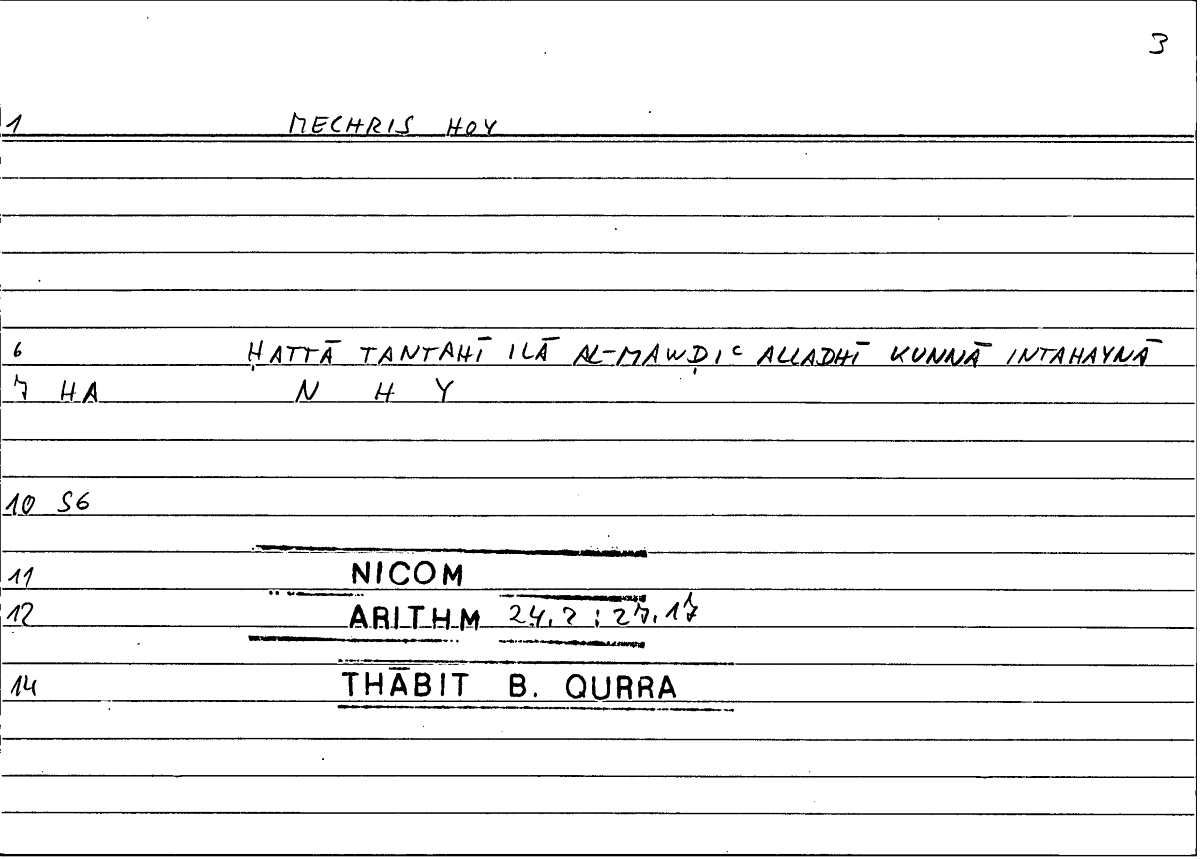 3
1 MECHRIS HOY
6 ḤATTĀ TANTAHĪ ILĀ AL-MAWḌIᶜ ALLADHĪ KUNNĀ INTAHAYNĀ
7 HA N H Y
10 S6
11 NICOM
12 ARITHM 24.2 : 27.17
14 THĀBIT B. QURRA